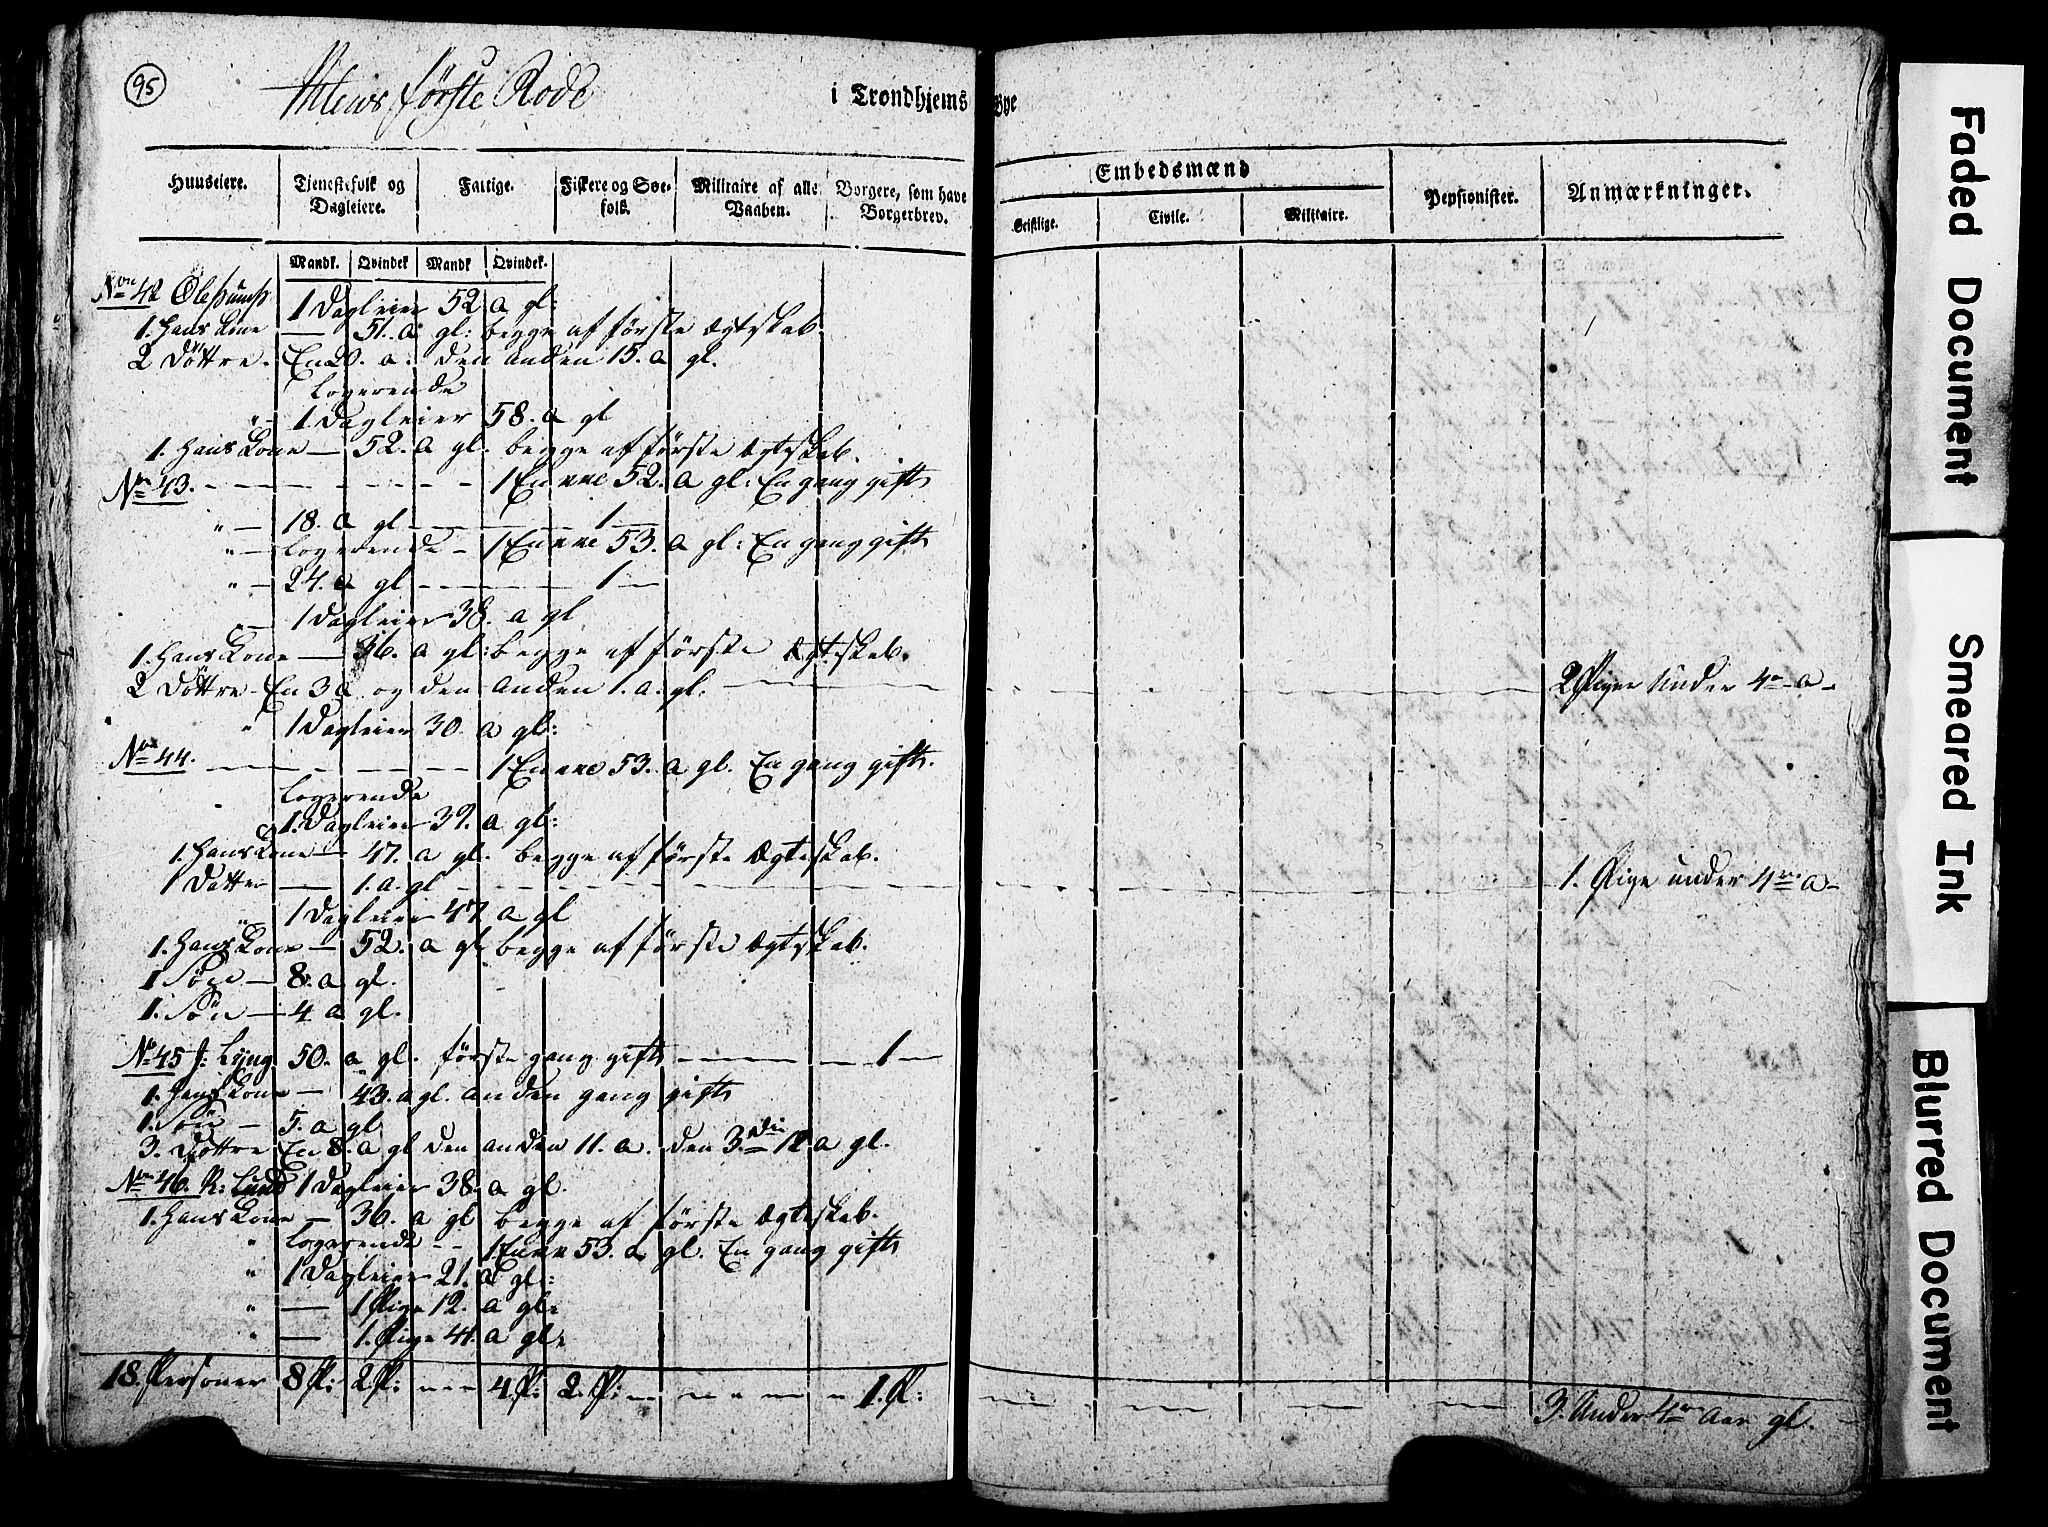 95
Ihlens første Rode
i Trondhjems Bye
Huuseiere. Tjenestefolk og Dagleiere. Fattige. Fiskere og Søefolk. Militaire af alle Vaaben. Borgere, som have Borgerbrev. Embedsmænd Pensionister. Anmærkninger.
Geistlige. Civile. Militaire.
Mandk. Qvindek. Mandk. Qvindek.
No 42 Ole 1 Dagleier 52 a gl:
1. Hans Kone — 51. a gl: begge af første Ægteskab
2 Døttre. En 20. a. den anden 15. a gl.
Logerende
" - 1 Dagleier 58. a gl
1. Hans Kone — 52. a gl. begge af første Ægteskab.
No 43. - - - 1 Enke 52. a gl: En gang gift
" — 18. a gl - - - 1 —
" — Logerende - 1 Enke 53. a gl: En gang gift
" — 24. a gl - - - 1 —
" — 1 Dagleier 38. a gl
1. Hans Kone — 36. a gl: begge af første Ægteskab.
2 Døttre - En 3 a og den anden 1. a. gl. - - - 2 Piger Under 4re a -
" 1 Dagleier 30. a gl:
No 44. - - - 1 Enke 53. a gl. En gang gift.
Logerende
1. Dagleier 39. a gl:
1. Hans Kone — 47. a gl. begge af første Ægteskab.
1 Datter — 1. a. gl - - - 1. Pige under 4re a -
" 1 Dagleier 47 a gl
1. Hans Kone — 52. a gl. begge af første Ægteskab.
1 Søn — 8. a gl.
1. Søn — 4 a gl.
No 45 J: Lyng. 50. a gl. første gang gift - - - 1 —
1. Hans Kone — 43. a gl. anden gang gift
1. Søn — 5. a gl
3. Døttre En 8. a gl den anden 11. a. den 3die 12 a gl.
No 46. R: Lund 1 Dagleier 38. a gl.
1. Hans Kone — 36. a gl begge af første Ægteskab.
" Logerende - - 1 Enke 53. a gl. En gang gift
" 1 Dagleier 21. a gl:
" — 1 Pige 12. a gl:
" — 1. Pige 41. a gl:
18. Personer 8 P: 2 P: - - 4 P: 2. P: - - - 1. P: - - - 3. Under 4re Aar gl.
Faded Document
Smeared Ink
Blurred Document